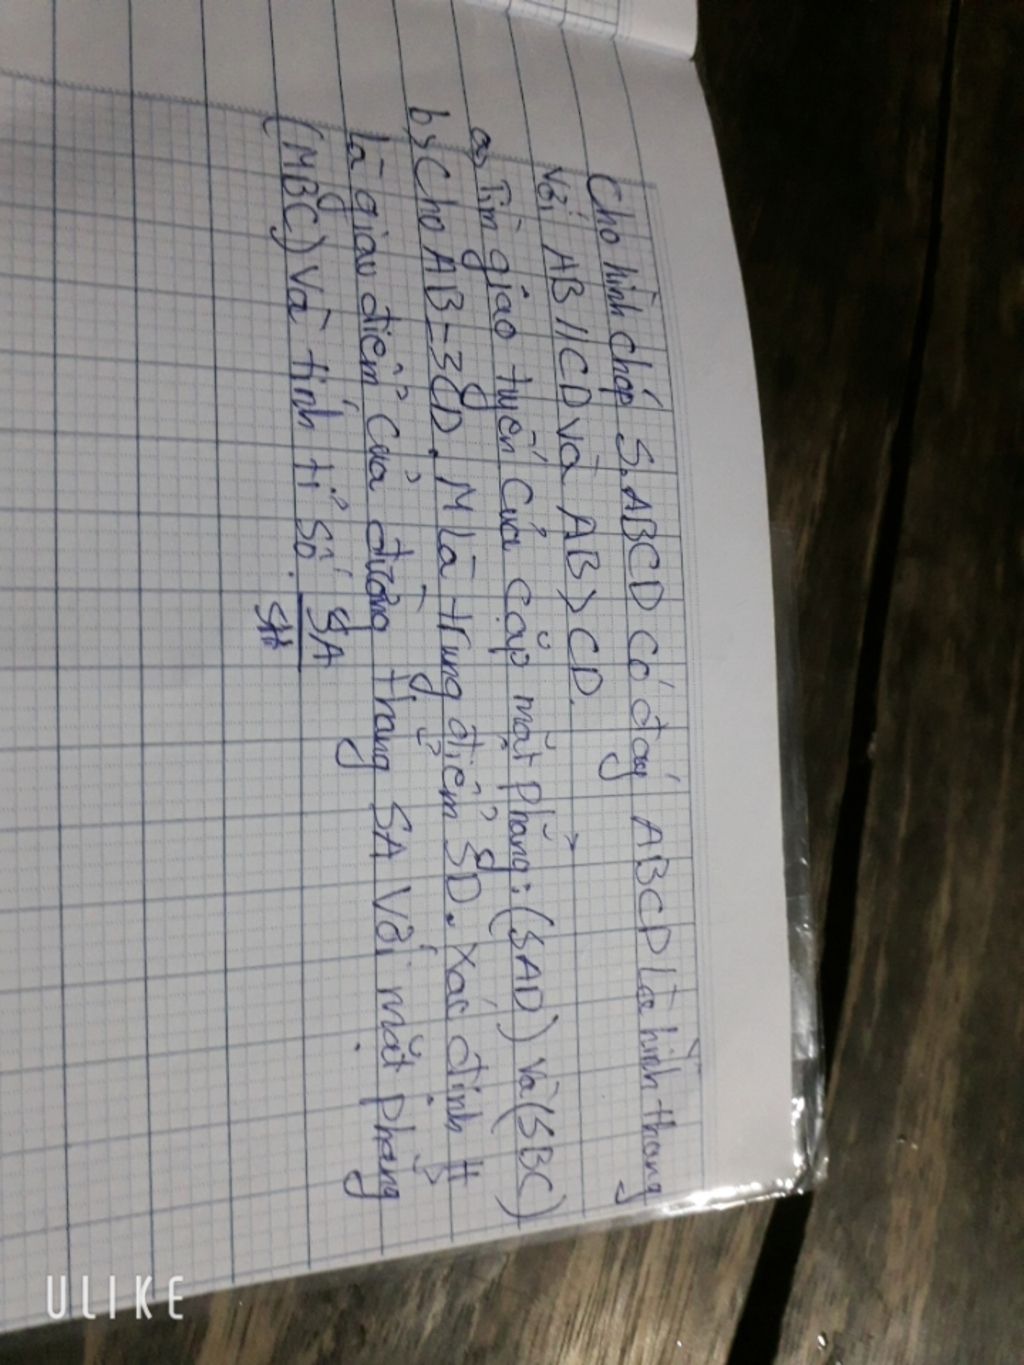 Cho hình chóp S.ABCD có đáy ABCD là hình thang
với AB // CD và AB > CD.
a, Tìm giao tuyến của cặp mặt phẳng: (SAD) và (SBC)
b, Cho AB = 3CD. M là trung điểm SD. Xác định H
là giao điểm của đường thẳng SA với mặt phẳng
(MBC) và tính tỉ số SA
SH
ULIKE